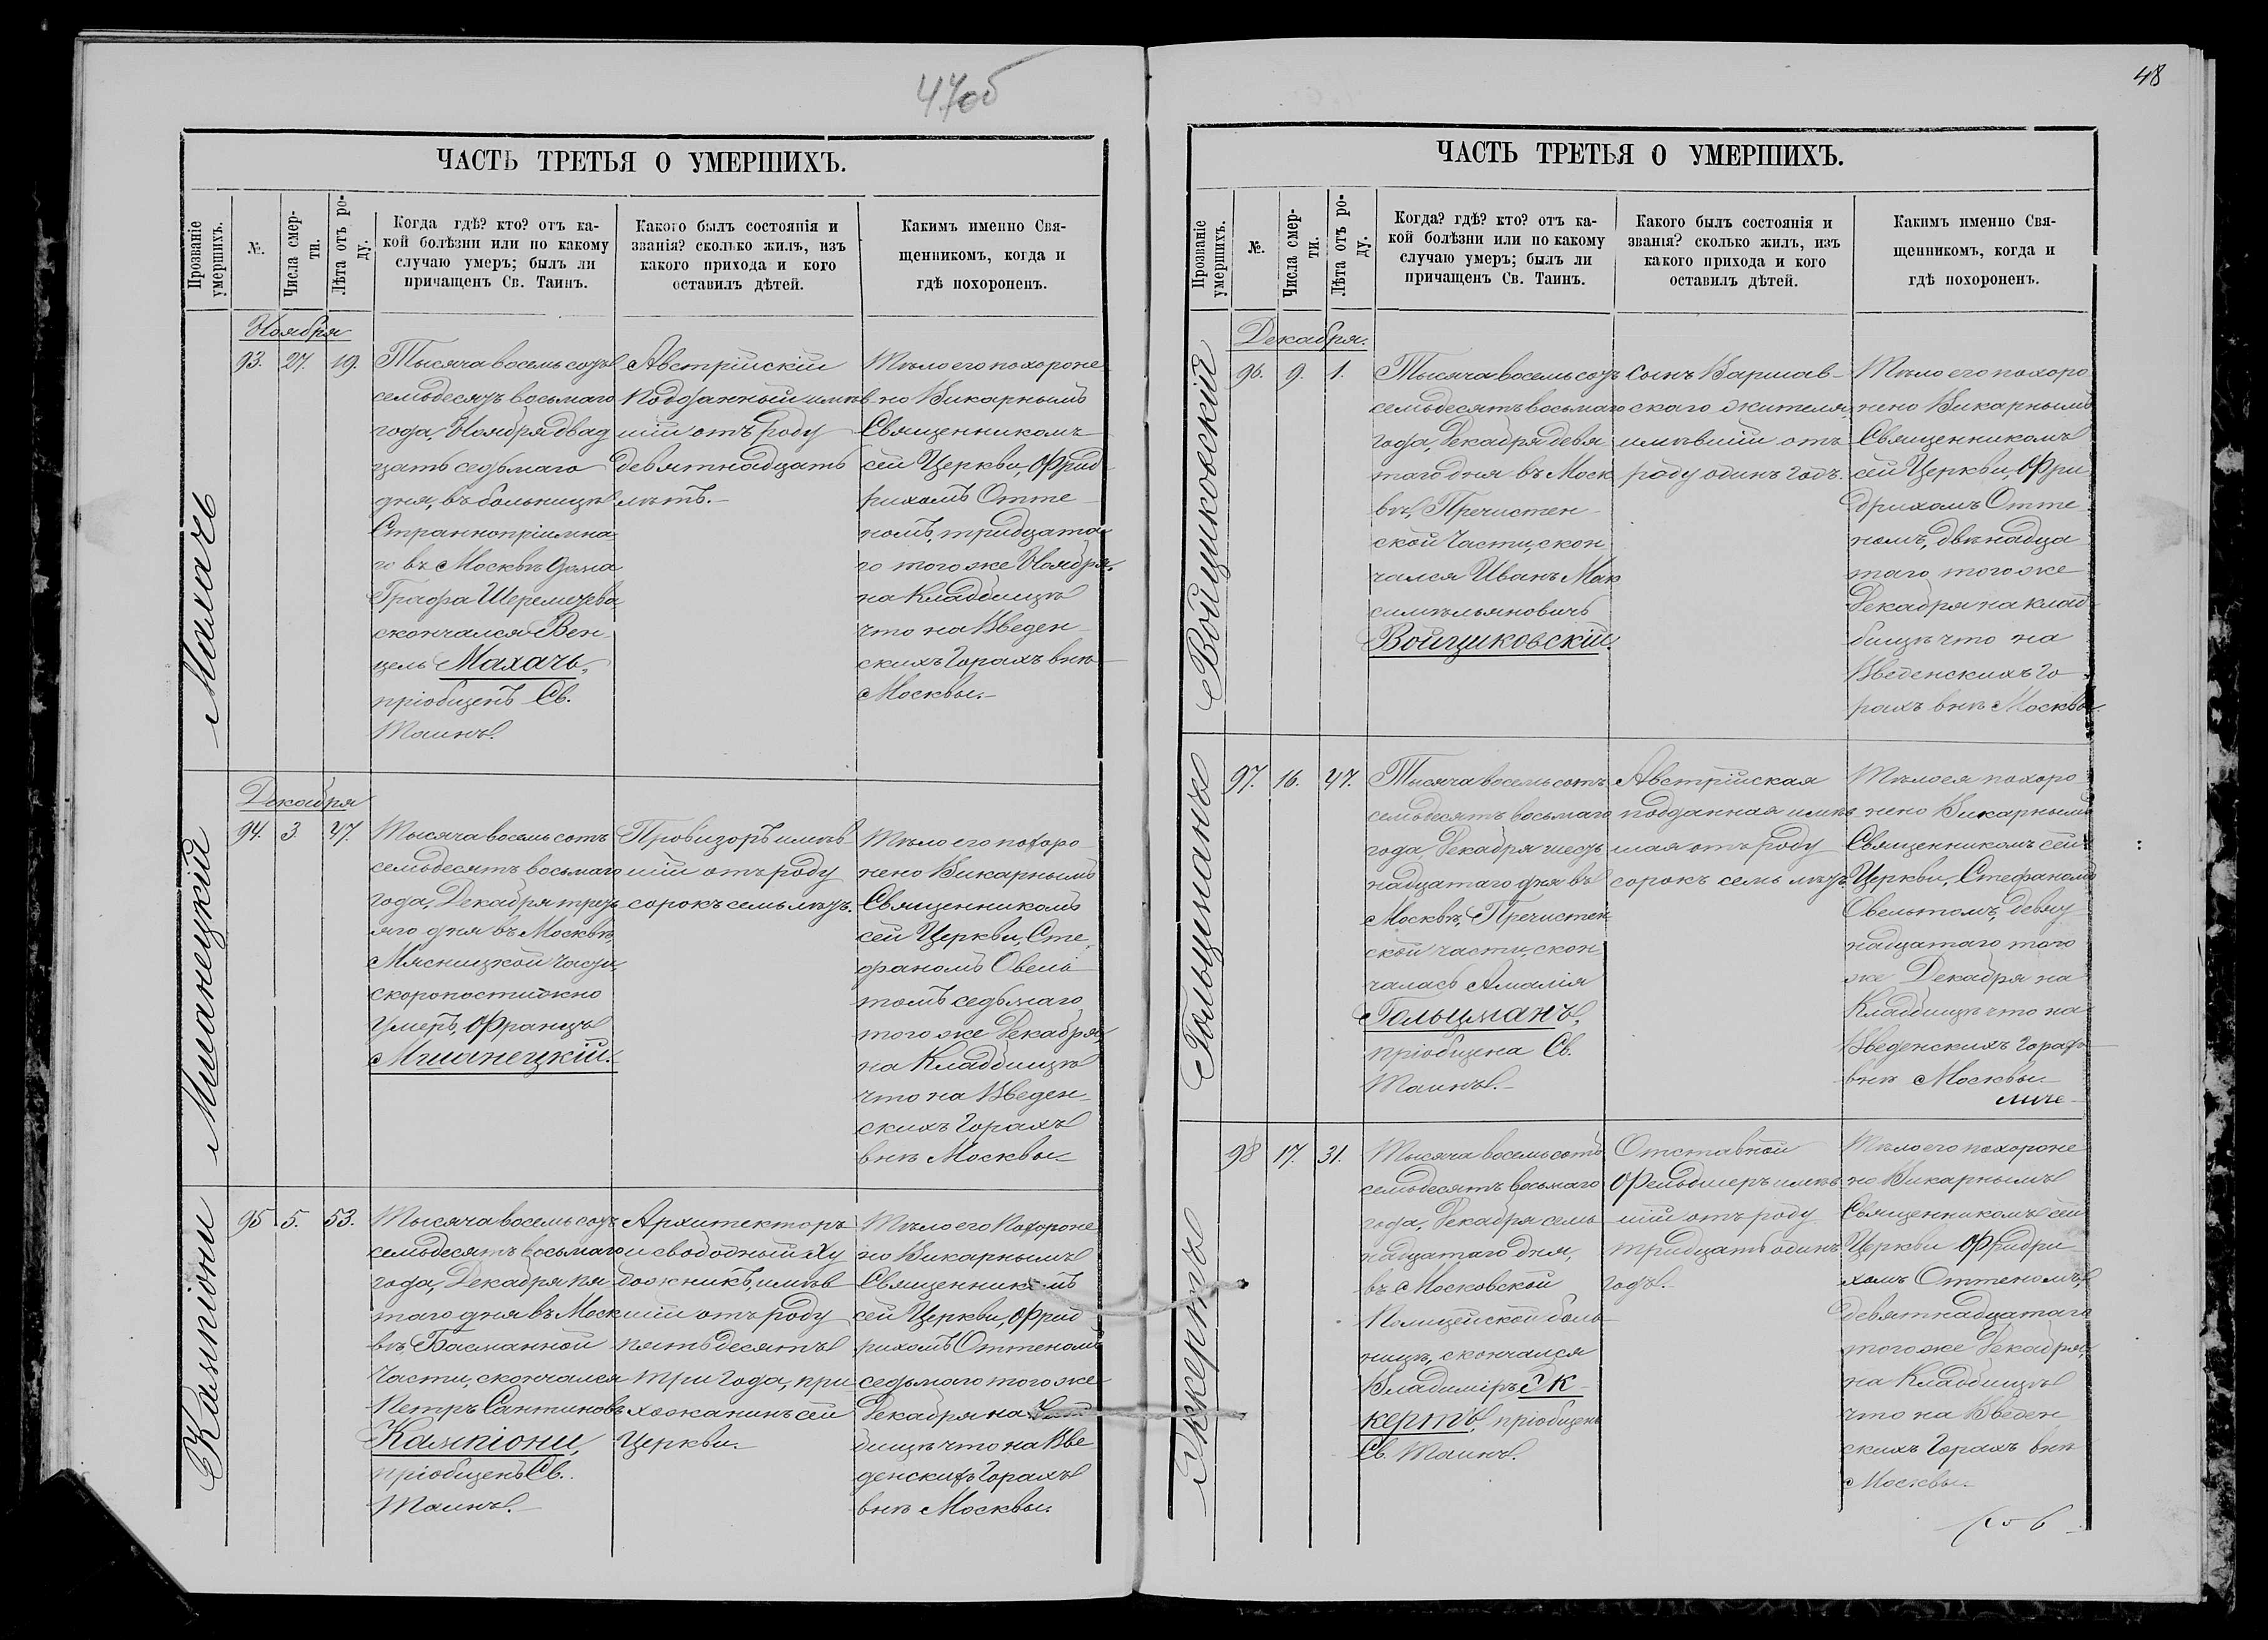 47об
ЧАСТЬ ТРЕТЬЯ О УМЕРШИХЪ.
Прозваніе умершихъ.
№.
Числа смерти.
Лѣта отъ роду.
Когда гдѣ? кто? отъ ка-
кой болѣзни или по какому
случаю умеръ; былъ ли
причащенъ Св. Таинъ.
Какого былъ состоянія и
званія? сколько жилъ, изъ
какого прихода и кого
оставилъ дѣтей.
Какимъ именно Свя-
щенникомъ, когда и
гдѣ похороненъ.
Махачъ
Ноября
93. 27. 19.
Тысяча восемь сотъ
семьдесятъ восьмаго
года, Ноября двад
цать седьмаго
дня, въ больницѣ
Страннопріимна
го въ Москвѣ дома
Графа Шереметева
скончался Вен-
цель Махачъ,
пріобщенъ Св.
Таинъ.
Австрійскій
подданный имѣв
шій отъ роду
девятнадцать
лѣтъ.-
Тѣло его похороне
но Викарнымъ
Священникомъ
сей Церкви, Фрид
рихомъ Отте-
номъ, тридцата
го того же Ноября,
на Кладбищѣ
что на Введен-
скихъ Горахъ внѣ
Москвы.-
Мшанецкій
Декабря
94. 3. 47.
Тысяча восемь сотъ
семьдесятъ восьмаго
года, Декабря треть
яго дня въ Москвѣ,
Мясницкой части,
скоропостижно
умеръ, Францъ
Мшанецкій.
Провизоръ имѣв-
шій отъ роду
сорокъ семь лѣтъ.
Тѣло его похоро
нено Викарнымъ
Священникомъ
сей Церкви, Сте
фаномъ Овель
томъ седьмаго
того же Декабря,
на Кладбищѣ
что на Введен-
скихъ Горахъ
внѣ Москвы.-
Кампіони
95. 5. 53.
Тысяча восемь сотъ
семьдесятъ восьмаго
года, Декабря пя
таго дня въ Моск
вѣ, Басманной
части, скончался
Петръ Сантиновъ
Кампіони,
пріобщенъ Св.
Таинъ.-
Архитекторъ
и свободный Ху
дожникъ, имѣв
шій отъ роду
пятьдесятъ
три года, при
хожанинъ сей
Церкви.-
Тѣло его похороне
но Викарнымъ
Священникомъ
сей Церкви, Фрид
рихомъ Оттеномъ
седьмаго того же
Декабря на Клад
бищѣ что на Вве
денскихъ Горахъ
внѣ Москвы.
48
ЧАСТЬ ТРЕТЬЯ О УМЕРШИХЪ.
Прозваніе умершихъ.
№.
Числа смерти.
Лѣта отъ роду.
Когда? гдѣ? кто? отъ ка-
кой болѣзни или по какому
случаю умеръ; былъ ли
причащенъ Св. Таинъ.
Какого былъ состоянія и
званія? сколько жилъ, изъ
какого прихода и кого
оставилъ дѣтей.
Какимъ именно Свя-
щенникомъ, когда и
гдѣ похороненъ.
Войциковскій
Декабря.
96. 9. 1.
Тысяча восемь сотъ
семьдесятъ восьмаго
года, Декабря девя
таго дня въ Моск
вѣ, Пречистен-
ской Части, скон
чался Иванъ Мак
симильяновичъ
Войциковскій.
сынъ Варшав-
скаго жителя,
имѣвшій отъ
роду одинъ годъ.
Тѣло его похоро
нено Викарнымъ
Священникомъ
сей Церкви, Фри
дрихомъ Отте
номъ, двѣнадца
таго того же
Декабря на клад
бищѣ что на
Введенскихъ Го
рахъ внѣ Москвы.
Гольцманъ
97. 16. 47.
Тысяча восемь сотъ
семьдесятъ восьмаго
года, Декабря шест
надцатаго дня въ
Москвѣ, Пречистен
ской части, скон
чалась Амалія
Гольцманъ,
пріобщена Св.
Таинъ.-
Австрійская
подданная имѣв
шая отъ роду
сорокъ семь лѣтъ.
Тѣло ея похоро
нено Викарнымъ
Священникомъ сей
Церкви, Стефаномъ
Овельтомъ, девят
надцатаго того
же Декабря на
Кладбищѣ что на
Введенскихъ Горахъ
внѣ Москвы.-
Эккертъ
98 17. 31.
Тысяча восемь сотъ
семьдесятъ восьмаго
года, Декабря семь
надцатаго дня,
въ Московской
Полицейской боль
ницѣ, скончался
Владиміръ Эк-
кертъ, пріобщенъ
Св. Таинъ.
Отставной
Фельдшеръ имѣв
шій отъ роду
тридцать одинъ
годъ.-
Тѣло его похороне
но Викарнымъ
Священникомъ сей
Церкви Фридри
хомъ Оттеномъ,
девятнадцатаго
того же Декабря,
на Кладбищѣ
что на Введен
скихъ Горахъ внѣ
Москвы.-